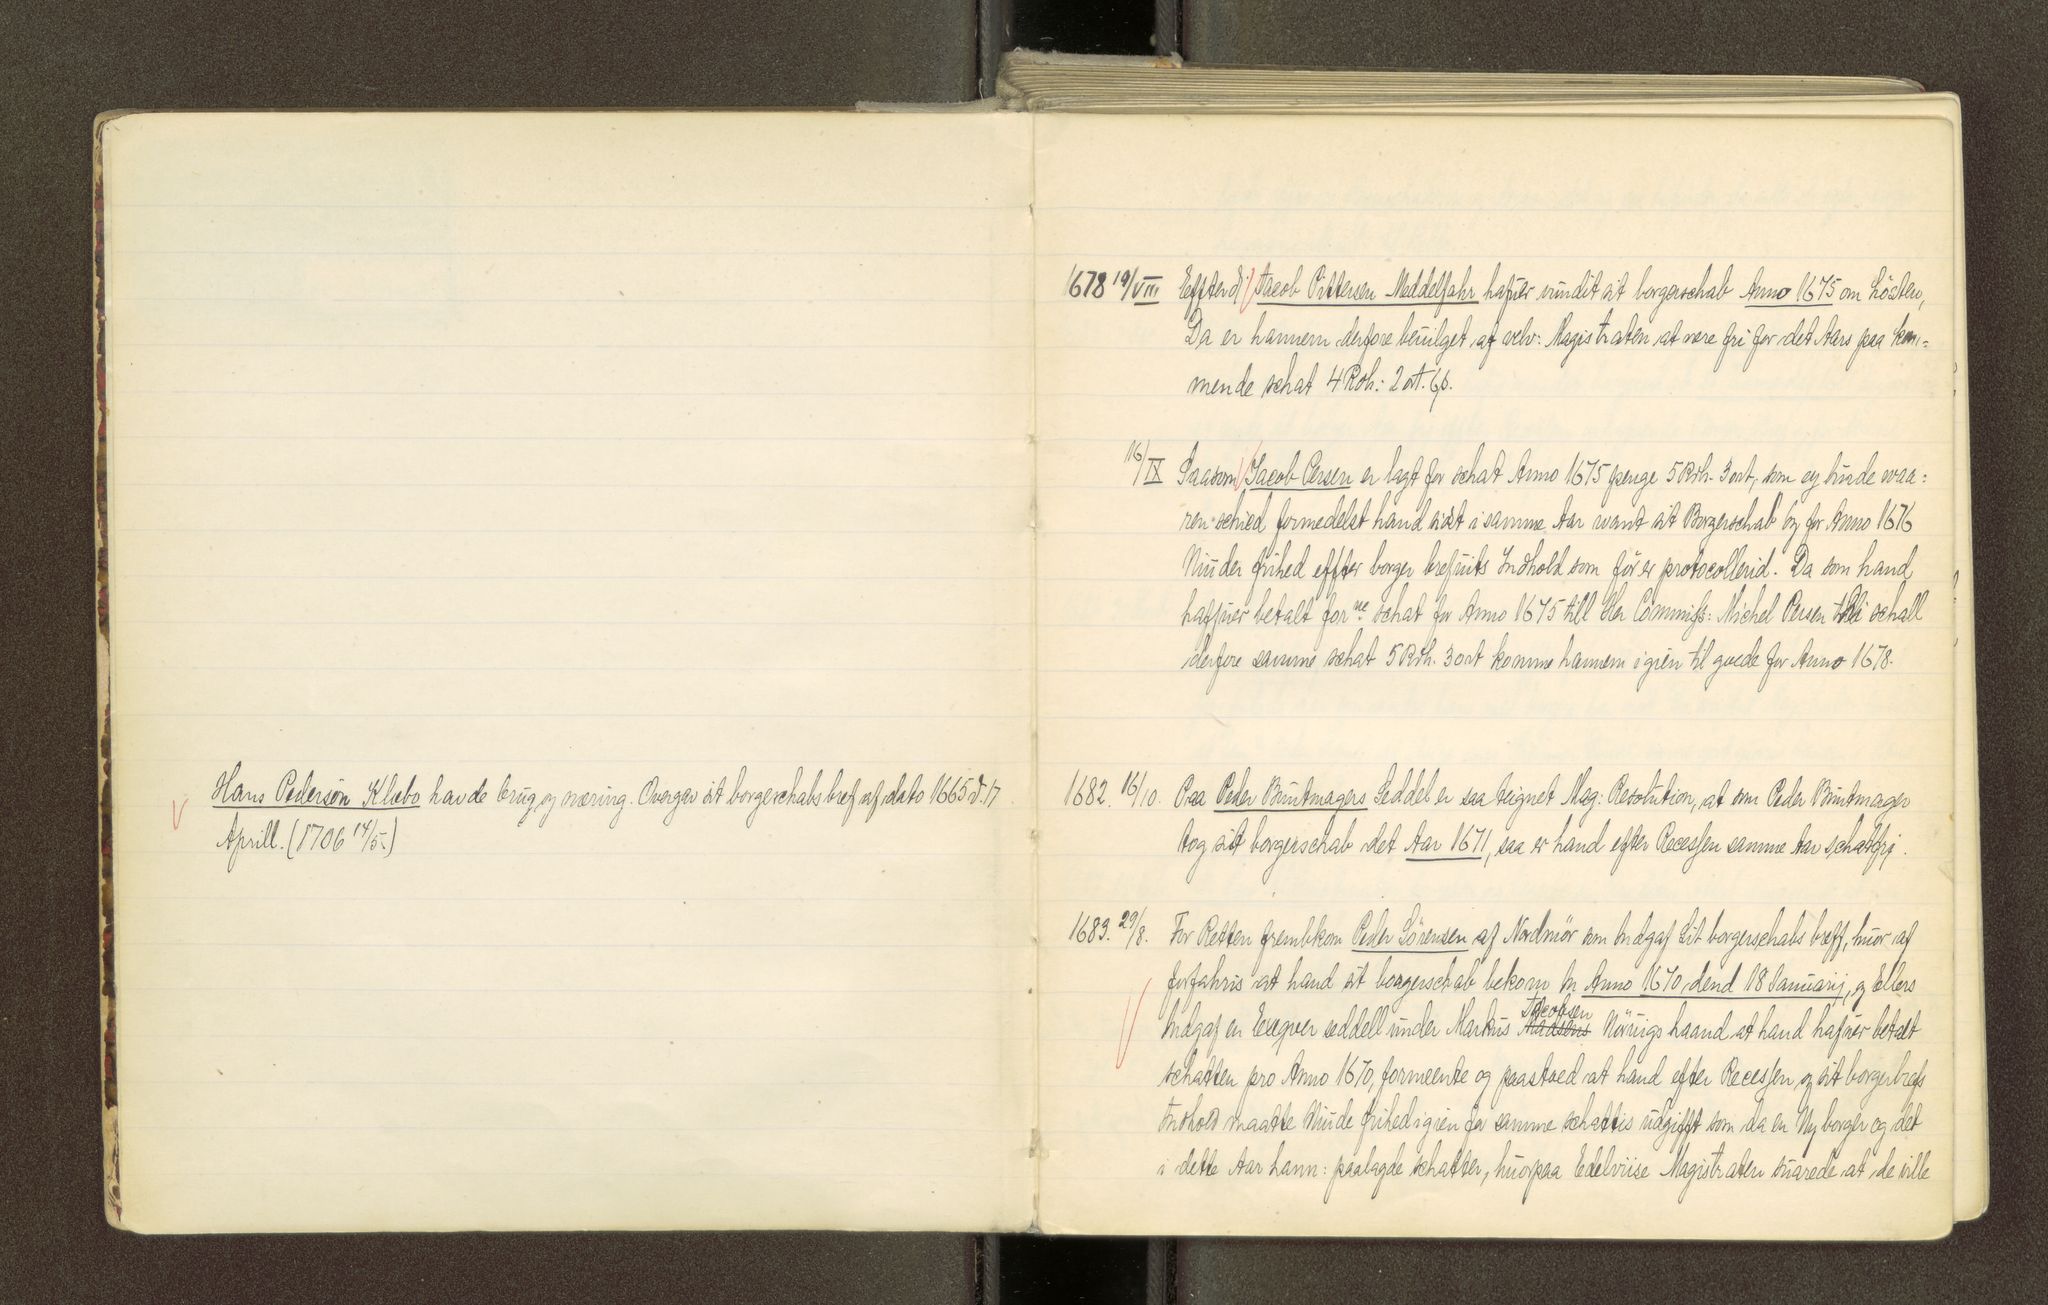 Hans Pedersøn Klæbo havde brug og næring. Overgav sit borgerschabs bref af dato 1665 d. 17
Aprill. (1706 14/5.)
1678 19/VIII Effterdj Jacob Pittersen Meddelfahr hafuer vundit sit borgerschab Anno 1675 om Høsten,
Da er hannem derfore beuilget af velv: Magistraten at vere fri for det Aars paa kom-
mende schat 4 Rdh: 2 ort. 6 s.
16/IX Saasom Jacob Persen er lagt for schat Anno 1675 penge 5 Rdh. 3 ort, som ey burde waa=
ren schied formedelst hand sidst i samme Aar want sit Borgerschab og for Anno 1676
Niuder frihed effter borger brefuits Indhold som før er protocollerid. Da som hand
haffuer betalt for ne schat for Anno 1675 till Sler Commiss: Michel Persen schall
derfore samme schat 5 Rdh. 3 ort komme hannem igien til goede for Anno 1678.
1682. 16/10. Paa Peder Buntmagers Seddel er saa teignet Mag: Resolution, at som Peder Buntmager
tog sit borgerschab det Aar 1671, saa er hand efter Recessen samme Aar schatfrj.
1683. 29/8. For Retten frembkom Peder Sörensen af Nordmör som Indgaf Sit borgerschabs breff, huor af
forfahris at hand sit borgerschab bekom In Anno 1670 dend 18 Januarij, og Ellers
Indgaf en Exqver seddell under Markus Jacobsen Nöruigs haand at hand hafuer betalt
schatten pro Anno 1670, formeente og paastoed at hand efter Recessen og sit borgerbrefs
Indhold maatte Niude frihed igien for samme schattis udgifft som da en Ny borger og det
i dette Aar hann: paalagde schatter, huorpaa Edelviise Magistraten suarede at de ville